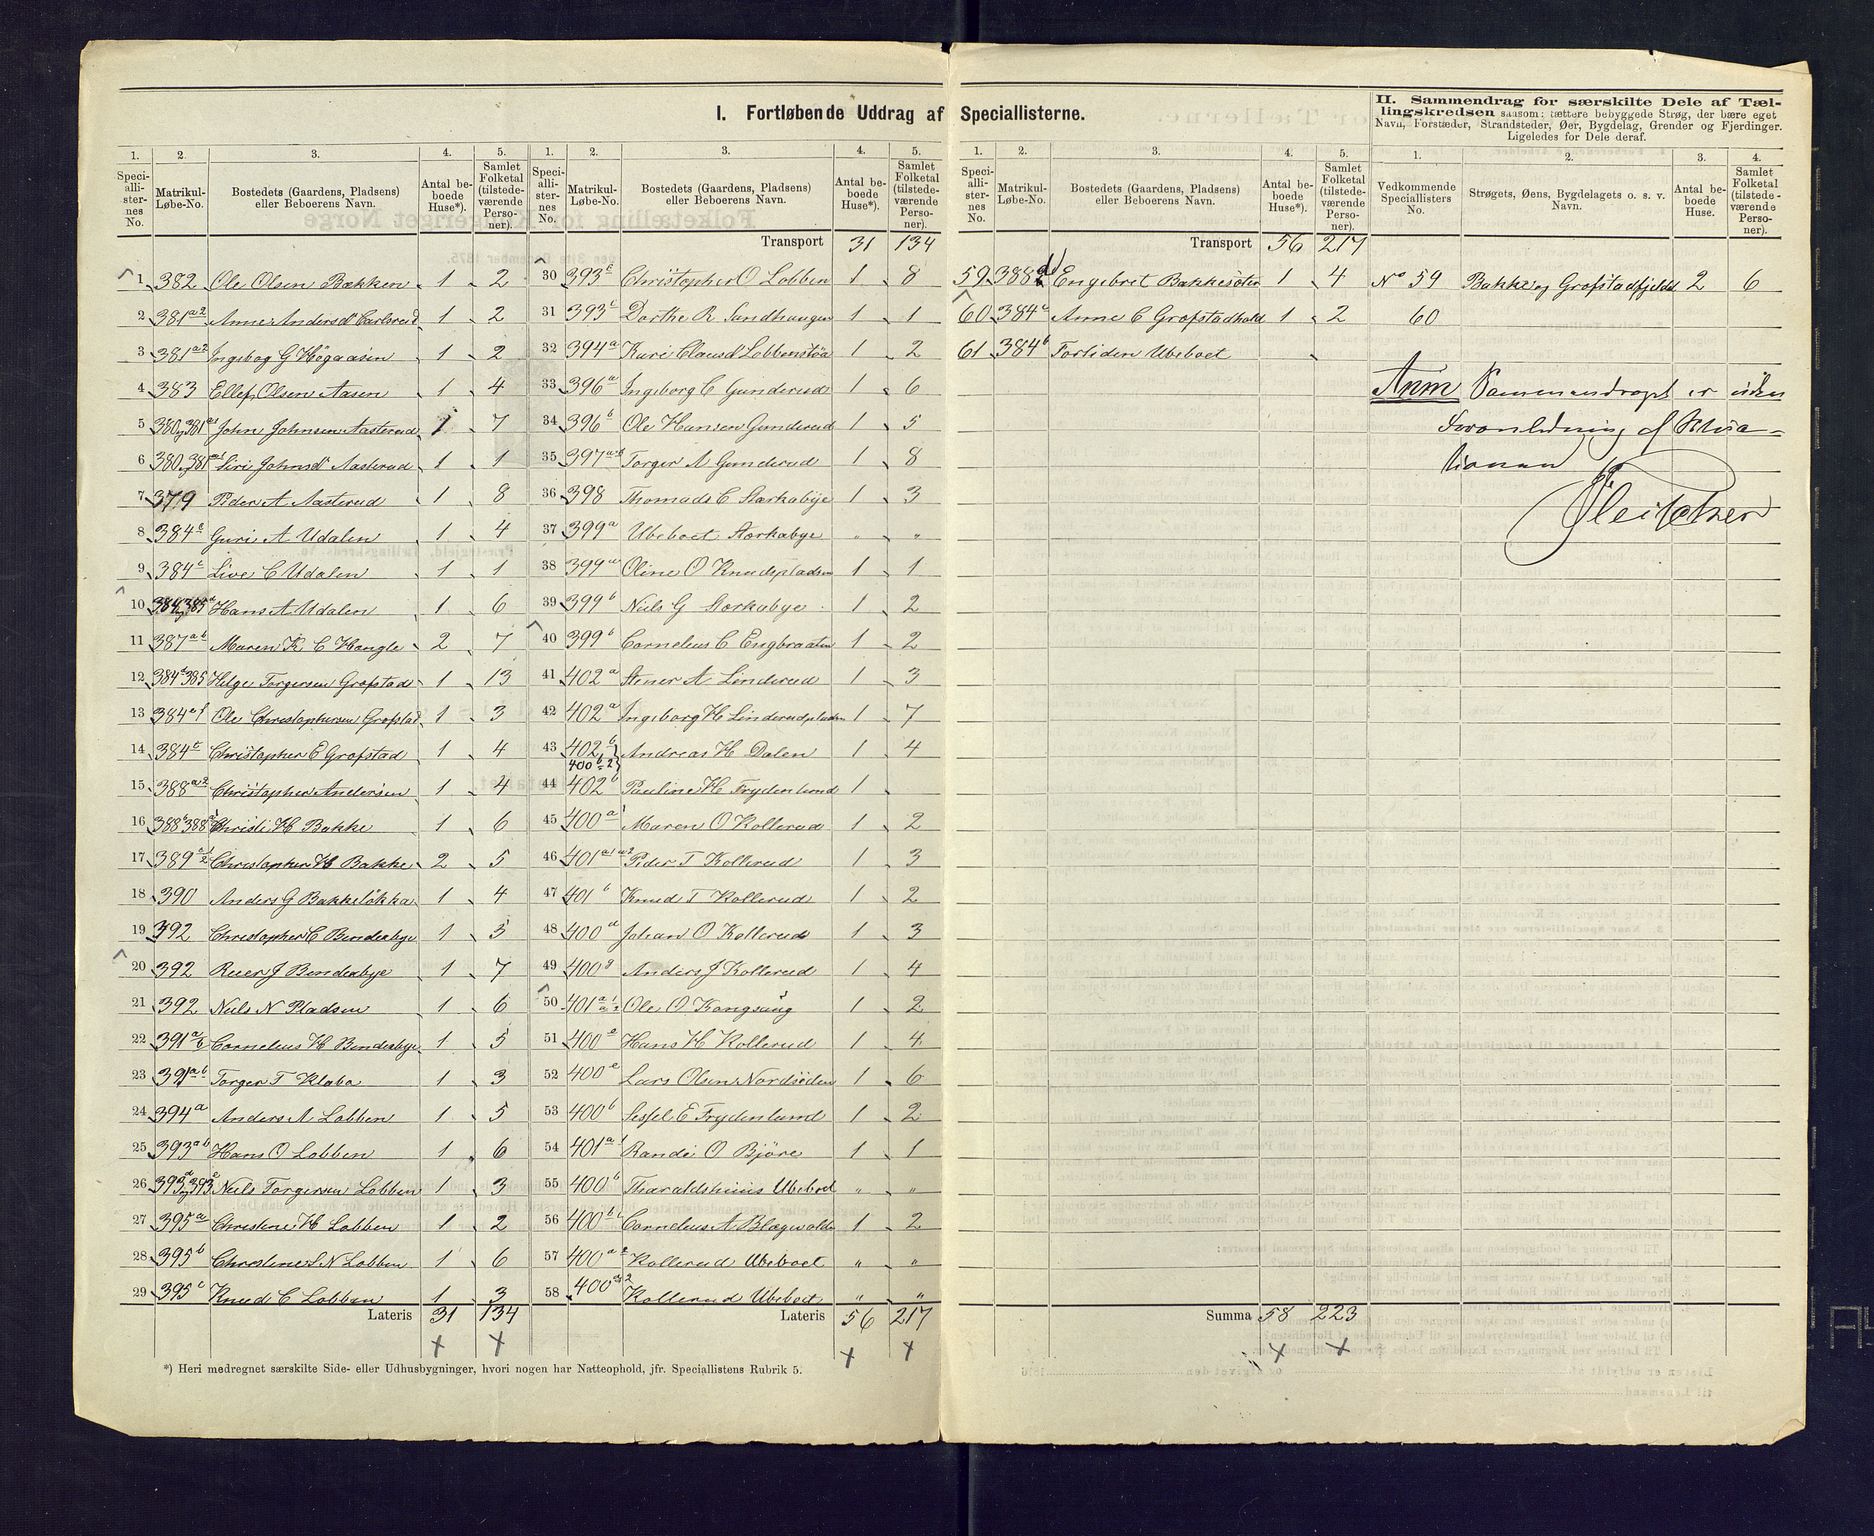 I. Fortløbende Uddrag af Speciallisterne.
II. Sammendrag for særskilte Dele af Tæl-
lingskredsen saasom: tættere bebyggede Strøg, der bære eget
Navn, Forstæder, Strandsteder, Øer, Bygdelag, Grender og Fjerdinger.
Ligeledes for Dele deraf.
1. 2. 3. 4. 5.
Speci-alli-ster-nes No. Matrikul-Løbe-No. Bostedets (Gaardens, Pladsens) eller Beboerens Navn. Antal be-boede Huse*). Samlet Folketal (tilstede-værende Perso-ner).
1 382 Ole Olsen Bækken 1 2
2 381 a2 Anne Andersd Carlsrud 1 2
3 381 a2 Ingebog G Høgaasen 1 2
4 383 Ellef Olsen Aasen 1 4
5 380 og 381 a1 John Johnsen Aasterud 1 7
6 380 og 381 a1 Siri Johnsd Aasterud 1 1
7 379 Peder A Aasterud 1 8
8 384 c Guri A Udalen 1 4
9 384 c Live C Udalen 1 1
10 Hans A Udalen 1 6
11 387 a b Maren K C Haugle 2 7
12 384 d 385 Helge Torgersen Grofstad 1 13
13 384 a f Ole Christophersen Grofstad 1 3
14 384 c Christopher E Grofstad 1 4
15 388 a2 Christopher Andersen 1 4
16 388 b 388 a1 Christi H Bakke 1 6
17 389 a 1/2 Christopher H Bakke 2 5
18 390 Anders G Bakkeløkka 1 4
19 392 Christopher C Benderbye 1 3
20 392 Reier J Benderbye 1 7
21 392 Niels N Pladsen 1 6
22 391 a/b Cornelius H Benderbye 1 5
23 391 a b Torger T Klabo 1 3
24 394 a Anders A Lobben 1 5
25 393 a b Hans O Lobben 1 6
26 393 d og 393 e Niels Torgersen Lobben 1 3
27 395 a Christine H Lobben 1 2
28 395 b Christine S N Lobben 1 6
29 395 c Knud C Lobben 1 3
Lateris 31 134
*) Heri medregnet særskilte Side- eller Udhusbygninger, hvori nogen har Natteophold, jfr. Speciallistens Rubrik 5.
1. 2. 3. 4. 5.
Speci-alli-ster-nes No. Matrikul-Løbe-No. Bostedets (Gaardens, Pladsens) eller Beboerens Navn. Antal be-boede Huse*). Samlet Folketal (tilstede-værende Perso-ner).
Transport 31 134
30 393 c Christopher O Lobben 1 8
31 393 c Dorthe R Sandhaugen 1 1
32 394 a Kari Clausd Lobbenstøa 1 2
33 396 a Ingeborg C Gunderud 1 6
34 396 b Ole Hansen Gunderud 1 5
35 397 a b Torger A Gunderud 1 8
36 398 Thomads C Storkabye 1 3
37 399 a Ubeboet Storkabye " "
38 399 a Oline O Knudspladsen 1 1
39 399 b Niels G Storkabye 1 2
40 399 b Cornelius C Engbraaten 1 2
41 402 a Stener A Linderud 1 3
42 402 a Ingeborg H Linderudpladsen 1 7
43 402 b 400 b 2 Andreas H Dalen 1 4
44 402 b Pauline H Frydenlund 1
45 400 a 1 Maren O Kollerud 1 2
46 401 a1 a2 Peder T Kollerud 1 3
47 401 b Knud T Kollerud 1 2
48 400 d Johan O Kollerud 1 3
49 400 g Anders J Kollerud 1 4
50 401 Ole O Kongsung 1 2
51 400 e Hans H Kollerud 1 4
52 400 e Lars Olsen Nordsiden 1 6
53 400 b Sissel E Frydenlund 1 2
54 401 a 1 Randi O Bjøre 1 1
55 400 b Tharaldshuus Ubeboet " "
56 400 b Cornelius A 1 2
57 400 a 2 Kollerud Ubeboet " "
58 400 a 2 Kollerud Ubeboet " "
Lateris 56 217
1. 2. 3. 4. 5.
Speci-alli-ster-nes No. Matrikul-Løbe-No. Bostedets (Gaardens, Pladsens) eller Beboerens Navn. Antal be-boede Huse*). Samlet Folketal (tilstede-værende Perso-ner).
Transport 56 217
59 388 Engebret Bakkesæter 1 4
60 384 c Anne C Grofstadhold 1 2
61 384 b Fortiden Ubeboet
Summa 58 223
1. 2. 3. 4.
Vedkommende Speciallisters No. Strøgets, Øens, Bygdelagets o. s. v. Navn. Antal be-boede Huse. Samlet Folketal (tilstede-værende Perso-ner).
No 59 Bakke og Grofstadfjeldet 2 6
60
Anm Sammendraget er uden
Foranledning af Situa-
tionen